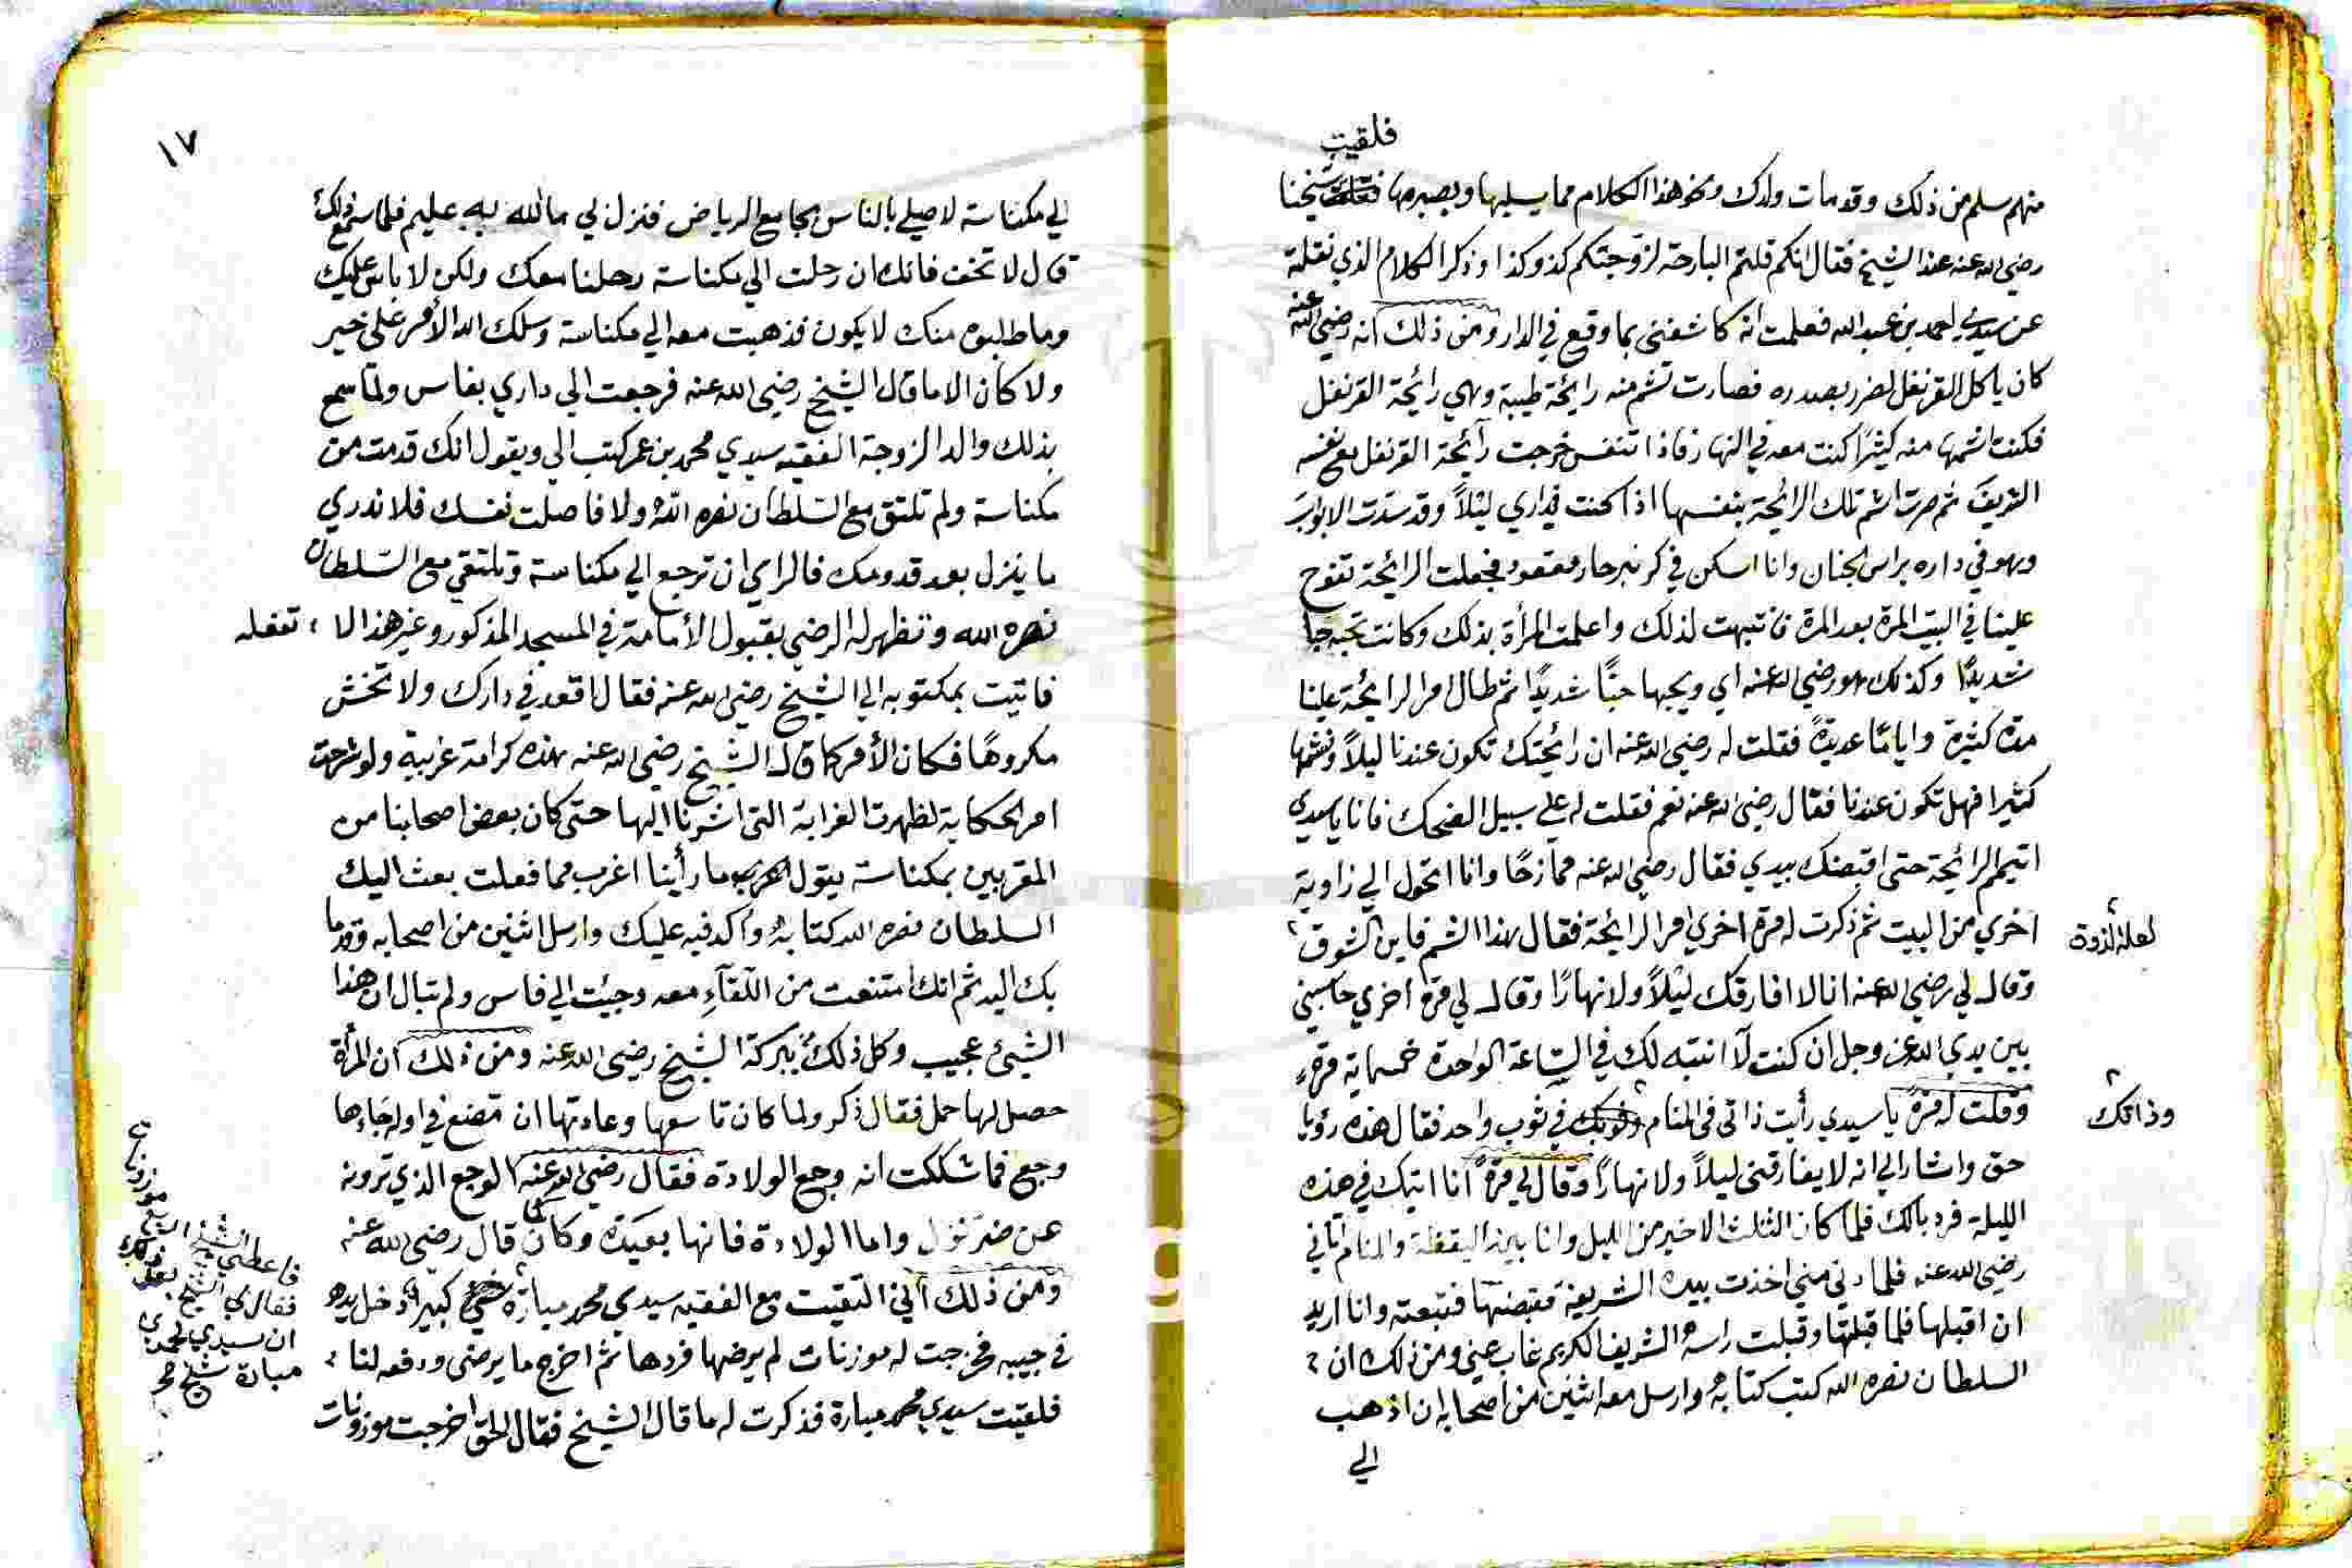 فلقيت
منهم سلم من ذلك وقد مات ولدك ونحو هذا الكلام مما يسليها ويصبرها شيخنا
رضي الله عنه عند الشيخ فقال انكم قلتم البارحة لزوجتكم كذو كذا وذكر الكلام الذي نقلته
عن سيدي احمد بن عبد الله فعلمت انه كاشفني بما وقع في الدار ومن ذلك انه رضي الله عنه
كان ياكل القرنفل لضرر بصدره فصارت تشم منه رايحة طيبة وهي رايحة القرنفل
فكنت اشمها منه كيثرًا كنت معه في النهار فاذا تنفس خرجت رآيحة القرنفل مع نفسه
الشريف ثم صرت اشم تلك الرايحة بنفسها اذا كنت في داري ليلًا وقد سددت الابواب
وهو في داره براس الجنان وانا اسكن في فجعلت الرايحة تفوح
علينا في البيت المرة بعد المرة فانتبهت لذلك واعلمت المرأة بذلك وكانت تحبه حبا
شديدًا وكذلك هو رضي الله عنه اي ويحبها حبًّا شديدًا ثم طال امر الرايحة علينا
مدة كثيرة وايامًا عديدةً فقلت له رضي الله عنه ان رائحتك تكون عندنا ليلًا ونشمها
كثيرا فهل تكون عندنا فقال رضي الله عنه نعم فقلت له علي سبيل الضحك فانا يا سيدي
اتيمم الرايحة حتى اقبضك بيدي فقال رضي الله عنه ممازحًا وانا اتحول الي زاوية
اخري من البيت ثم ذكرت له مرة اخري امر الرايحة فقال هذا الشم فاين الشوق
لعله الذوق
وقال لي رضي الله عنه انا لا افارقك ليلًا ولا نهارًا وقال لي مرة اخري حاسبني
بين يدي الله عز وجل ان كنت لآ انتبه لك في الساعة الواحدة خمسماية مرة
وقلت له مرة يا سيدي رأيت ذاتي في المنام في ثوب واحد فقال هذه رؤيا
وذاتك
حق واشار الي انه لا يفارقني ليلًا ولا نهارًا وقال لي مرة انا اتيك في هذه
الليلة فرد بالك فلما كان الثلث الاخير من الليل وانا بين اليقظة والمنام اتاني
رضي الله عنه فلما دني مني اخذت بيده الشريفة فقبضتها فتبعته وانا اريد
ان اقبلها فلما قبلتها وقبلت راسه الشريف الكريم غاب عني ومن ذلك ان
السلطان نصره الله كتب كتابه وارسل معه اثنين من اصحابه ان اذهب
الي
١٧
الي مكناسة لاصلي بالناس بجامع الرياض فنزل لي ما الله به عليم فلما سمع ذلك
قال لا تخف فانك ان رحلت الي مكناسة رحلنا معك ولكن لا باس عليك
وما طلبوه منك لا يكون فذهبت معه الي مكناسة وسلك الله الأمر على خير
ولا كان الا ما قال الشيخ رضي الله عنه فرجعت الي داري بفاس ولما سمع
بذلك والد الزوجة الفقيه سيدي محمد بن عمر كتب الي ويقول انك قدمت من
مكناسة ولم تلتق مع السلطان نصره الله ولا فاصلت نفسك فلا ندري
ما ينزل بعد قدومك فالراي ان ترجع الي مكناسة وتلتقي مع السلطان
نصره الله وتظهر له الرضي بقبول الأمامة في المسجد المذكور وغير هذا لا تفعله
فاتيت بمكتوبه الي الشيخ رضي الله عنه فقال اقعد في دارك ولا تخش
مكروهًا فكان الأمر كما قال الشيخ رضي الله عنه هذه كرامة غريبة ولو شرحت
امر الحكاية لظهرت الغرابة التي اشرنا اليها حتى كان بعض اصحابنا من
المقربين بمكناسة يقول ما رأينا اغرب مما فعلت بعث اليك
السلطان نصره الله كتابه وأكد فيه عليك وارسل اثنين من اصحابه وقدما
بك اليه ثم انك امتنعت من اللقآء معه وجيت الي فاس ولم تبال ان هذا
الشيئ عجيب وكل ذلك ببركة الشيخ رضي الله عنه ومن ذلك ان المرأة
حصل لها حمل فقال ذكر ولما كان تاسعها وعادتها ان تضع في اوله جاءها
وجع فما شككت انه وجع الولادة فقال رضي الله عنه الوجع الذي ترونه
عن ضر نزل واما الولادة فانها بعيدة وكان كما قال رضي الله عنه
ومن ذلك أني التقيت مع الفقيه سيدي محمد ميارة كبيرا دخل يده
في جيبه فخرجت له موزنات لم يرضها فردها ثم اخرج ما يرضى ودفعه لنا
فلقيت سيدي محمد ميارة فذكرت له ما قال الشيخ فقال الحق اخرجت موزونات
فاعطي الشيخ
فقال لي الشيخ بعد ذلك
ان سيدي محمد
ميارة